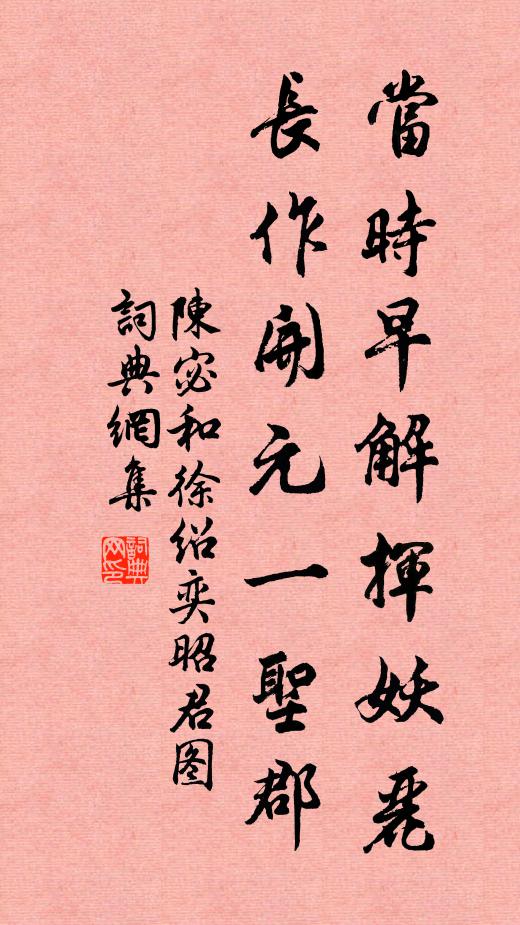 當時早解揮妖麗
長作開元一聖郡
陳宓和徐绍奕昭君图
詞典網集
詞典网印